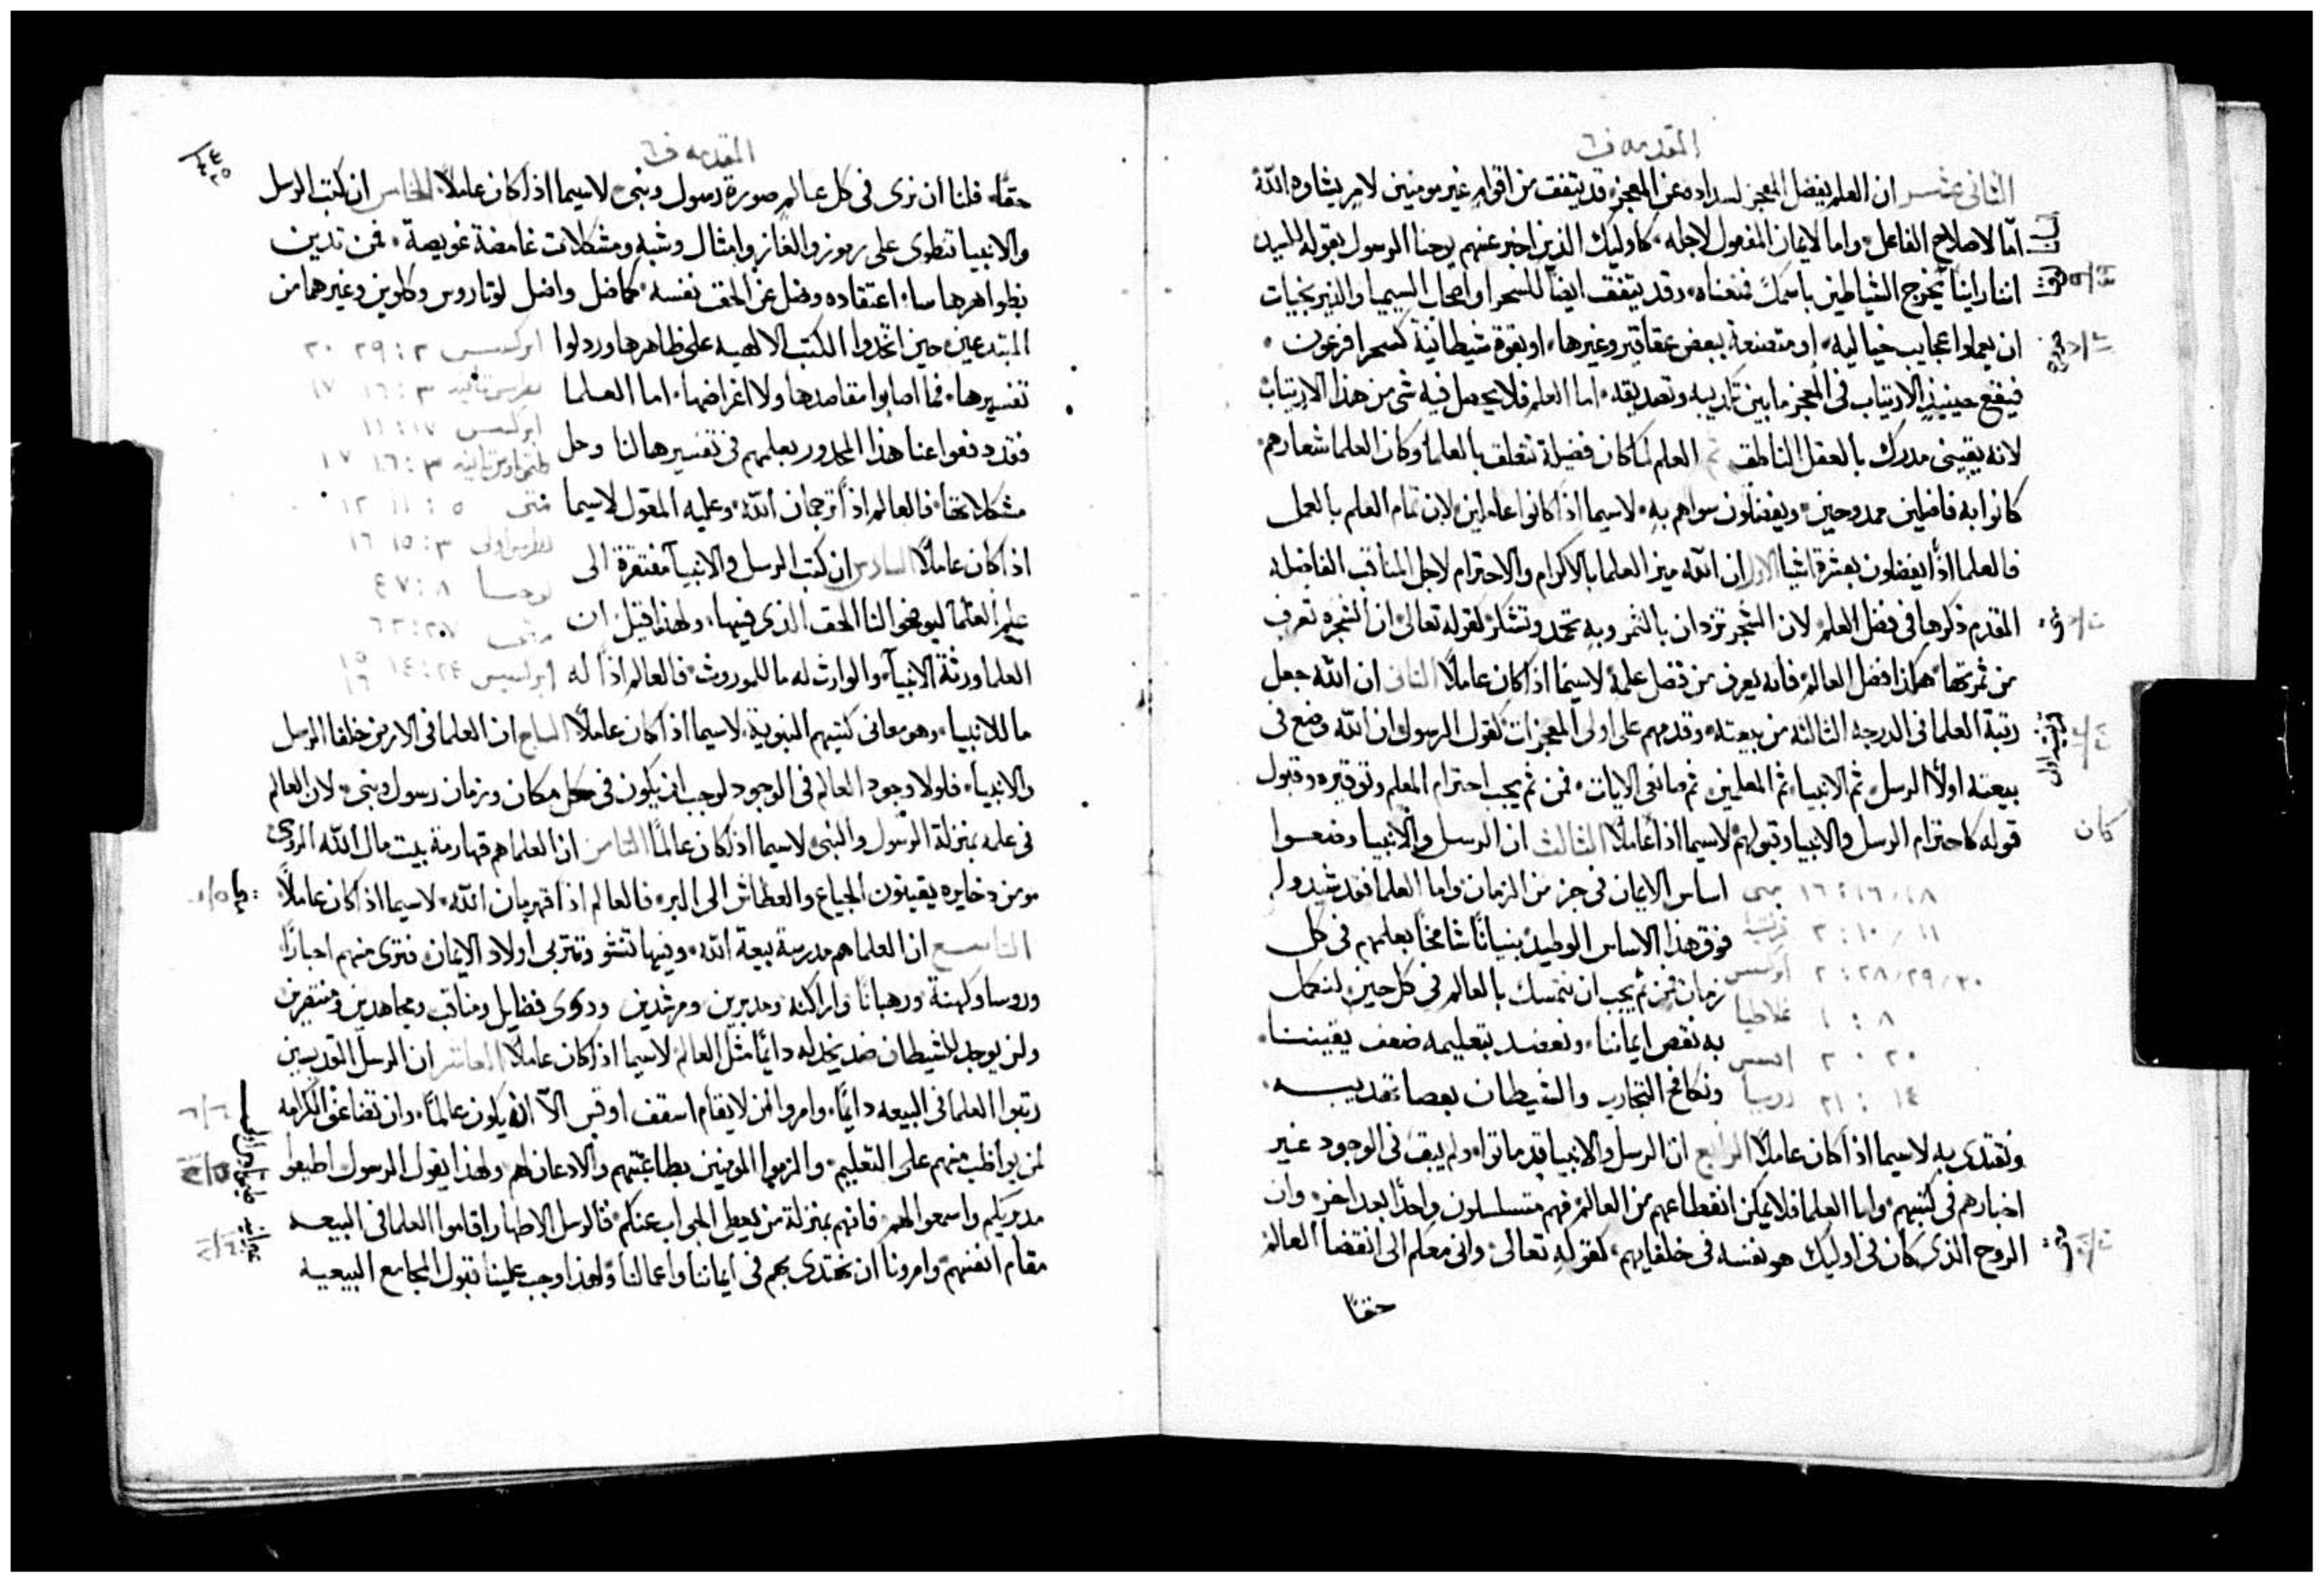 المقدمه ف٦
الثانى عشر ان العلم يفضل المعجز لسداده عن المعجز قد يتفق من اقوام غير مومنين لامر يشاوه الله
امّا لاصلاح الفاعل واما لايمان المفعول لاجله كاوليك الذين اخبر عنهم يوحنا الرسول بقوله للسيد
اننا راينا يخرج الشياطين باسمك فمنعناه وقد يتفق ايضا للسحر او اصحاب السيميا والنيرنجيات
ان يعملوا عجايب خياليه او متصنعة ببعض عقاقير وغيرها او بقوة شيطانية كسحرا فرعون
فيقع حينيذ الارتياب فى المعجز ما بين تكذيبه وتصديقه اما العلم فلا يحصل فيه شى من هذا الارتياب
لانه يقينى مدرك بالعقل الناطق ثم العلم لما كان فضيلة تتعلق بالعلما وكان العلما شعارهم
كانوا به فاضلين ممدوحين ويفضلون سواهم به لاسيما اذا كانوا عاملين لان تمام العلم بالعمل
فالعلما اذًا يفضلون بعشرة اشيا الاول ان الله ميز العلما بالاكرام والاحترام لاجل المناقب الفاضله
المقدم ذكرها فى فضل العلم لان الشجر تزدان بالثمر وبه تحمد وتشكر لقوله تعالى ان الشجره تعرف
من ثمرتها هكذا فضل العالم فانه يعرف من فضل علمه لاسيما اذا كان عاملًا الثانى ان الله جعل
رتبة العلما فى الدرجه الثالثه من بيعته وقدمهم على اولى المعجزات لقول الرسول ان الله وضع فى
بيعته اولًا الرسل ثم الانبيا ثم المعلمين ثم صانعى الايات فمن ثم يجب احترام المعلم وتوقيره وقبول
قوله كاحترام الرسل والانبيا وقبولهم لاسيما اذا عاملًا الثالث ان الرسل والانبيا وضعوا
كان
اساس الايمان فى جز من الزمان واما العلما فقد شيدوا
متى ١٦ : ١٦ / ١٨
فوق هذا الاساس الوطيد بنيانًا شامخًا بعلمهم فى كل
٣ : ١٠ / ١١
زمان فمن ثم يجب ان نتمسك بالعالم فى كل حين لنكمل
٢ : ٢٨ / ٢٩ / ٣٠
به نقص ايماننا ونعضد بتعليمه ضعف يقيننا
غلاطيا ١ : ٨
افسس ٢ ٢٠
ونكافح التجارب والشيطان بعصا تهديبه
٢١ : ١٤
ونقتدى به لاسيما اذا كان عاملًا الرابع ان الرسل والانبيا قد ماتوا ولم يبق فى الوجود غير
اخبارهم فى كتبهم واما العلما فلا يمكن انقطاعهم من العالم فهم متسلسلون واحدًا بعد اخر وان
الروح الذى كان فى اوليك هو نفسه فى خلفايهم لقوله تعالى وانى معكم الى انقضا العالم
حقًا
المقدمه ف٦
حقًا فلنا ان نرى فى كل عالم صورة رسول ونبى لاسيما اذا كان عاملًا الخامس ان كتب الرسل
والانبيا تنطوى على رموز والغاز وامثال وشبه ومشكلات غامضة عويصة فمن تدين
بظواهرها ساء اعتقاده وضل عن الحق نفسه كما ضل واضل لوتاروس وكلوين وغيرهما من
المبتدعين حين اتخذوا الكتب الالهيه على ظاهرها ورذلوا
ابركسيس ٢ : ٢٩ ٣٠
تفسيرها فما اصابوا مقاصدها ولا اغراضها اما العلما
بطرس ثانيه ٣ : ١٦ ١٧
ابركسيس ١٧ : ١١
فقد دفعوا عنا هذا المحدور بعلمهم فى تفسيرها لنا وحل
٣ : ١٦ ١٧
مشكلاتها فالعالم اذًا ترجمان الله وعليه المعول لاسيما
متى ٥ : ١١ ١٢
بطرس اولى ٣ : ١٥ ١٦
اذا كان عاملًا السادس ان كتب الرسل والانبيآ مفتقرة الى
يوحنا ٨ : ٤٧
علم العلما ليوضحوا لنا الحق الذى فيها ولهذا قيل ان
متى
العلما ورثة الانبيآ والوارث له ما للموروث فالعالم اذًا له
ابركسيس ٢٤ : ١٤ ١٥ ١٦
ما للانبيا وهو معانى كتبهم النبوية لاسيما اذا كان عاملًا السابع ان العلما فى الارض خلفا الرسل
والانبيا فلولا وجود العالم فى الوجود لوجب ان يكون فى كل مكان وزمان رسول ونبى لان العالم
فى علمه بمنزلة الرسول والنبى لاسيما اذا كان عالمًا الثامن ان العلما هم قهارمة بيت مال الله الروحى
ومن دخايره يقيتون الجياع والعطاش الى البر فالعالم اذًا قهرمان الله لاسيما اذا كان عاملًا
التاسع ان العلما هم مدرسة بيعة الله وفيها تنشو وتتربى اولاد الايمان فترى منهم احبارًا
وروسا وكهنة ورهبانًا واراكنه ومدبرين ومرشدين وذوى فضايل ومناقب ومجاهدين ومنتصرين
ولن يوجد للشيطان ضد يخذله دايمًا مثل العالم لاسيما اذا كان عاملًا العاشر ان الرسل القديسين
رتبوا العلما فى البيعه دايمًا وامروا بان لا يقام اسقف او قس الّا ان يكون عالمًا وان تضاعف الكرامه
لمن يواظب منهم على التعليم والزموا المومنين بطاعتهم والادعان لهم ولهذا يقول الرسول اطيعوا
مدبريكم واسمعوا لهم فانهم بمنزلة من يعطى الجواب عنكم فالرسل الاطهار اقاموا العلما فى البيعه
مقام انفسهم وامرونا ان نقتدى بهم فى ايماننا واعمالنا ولهذا وجب علينا قبول المجامع البيعيه